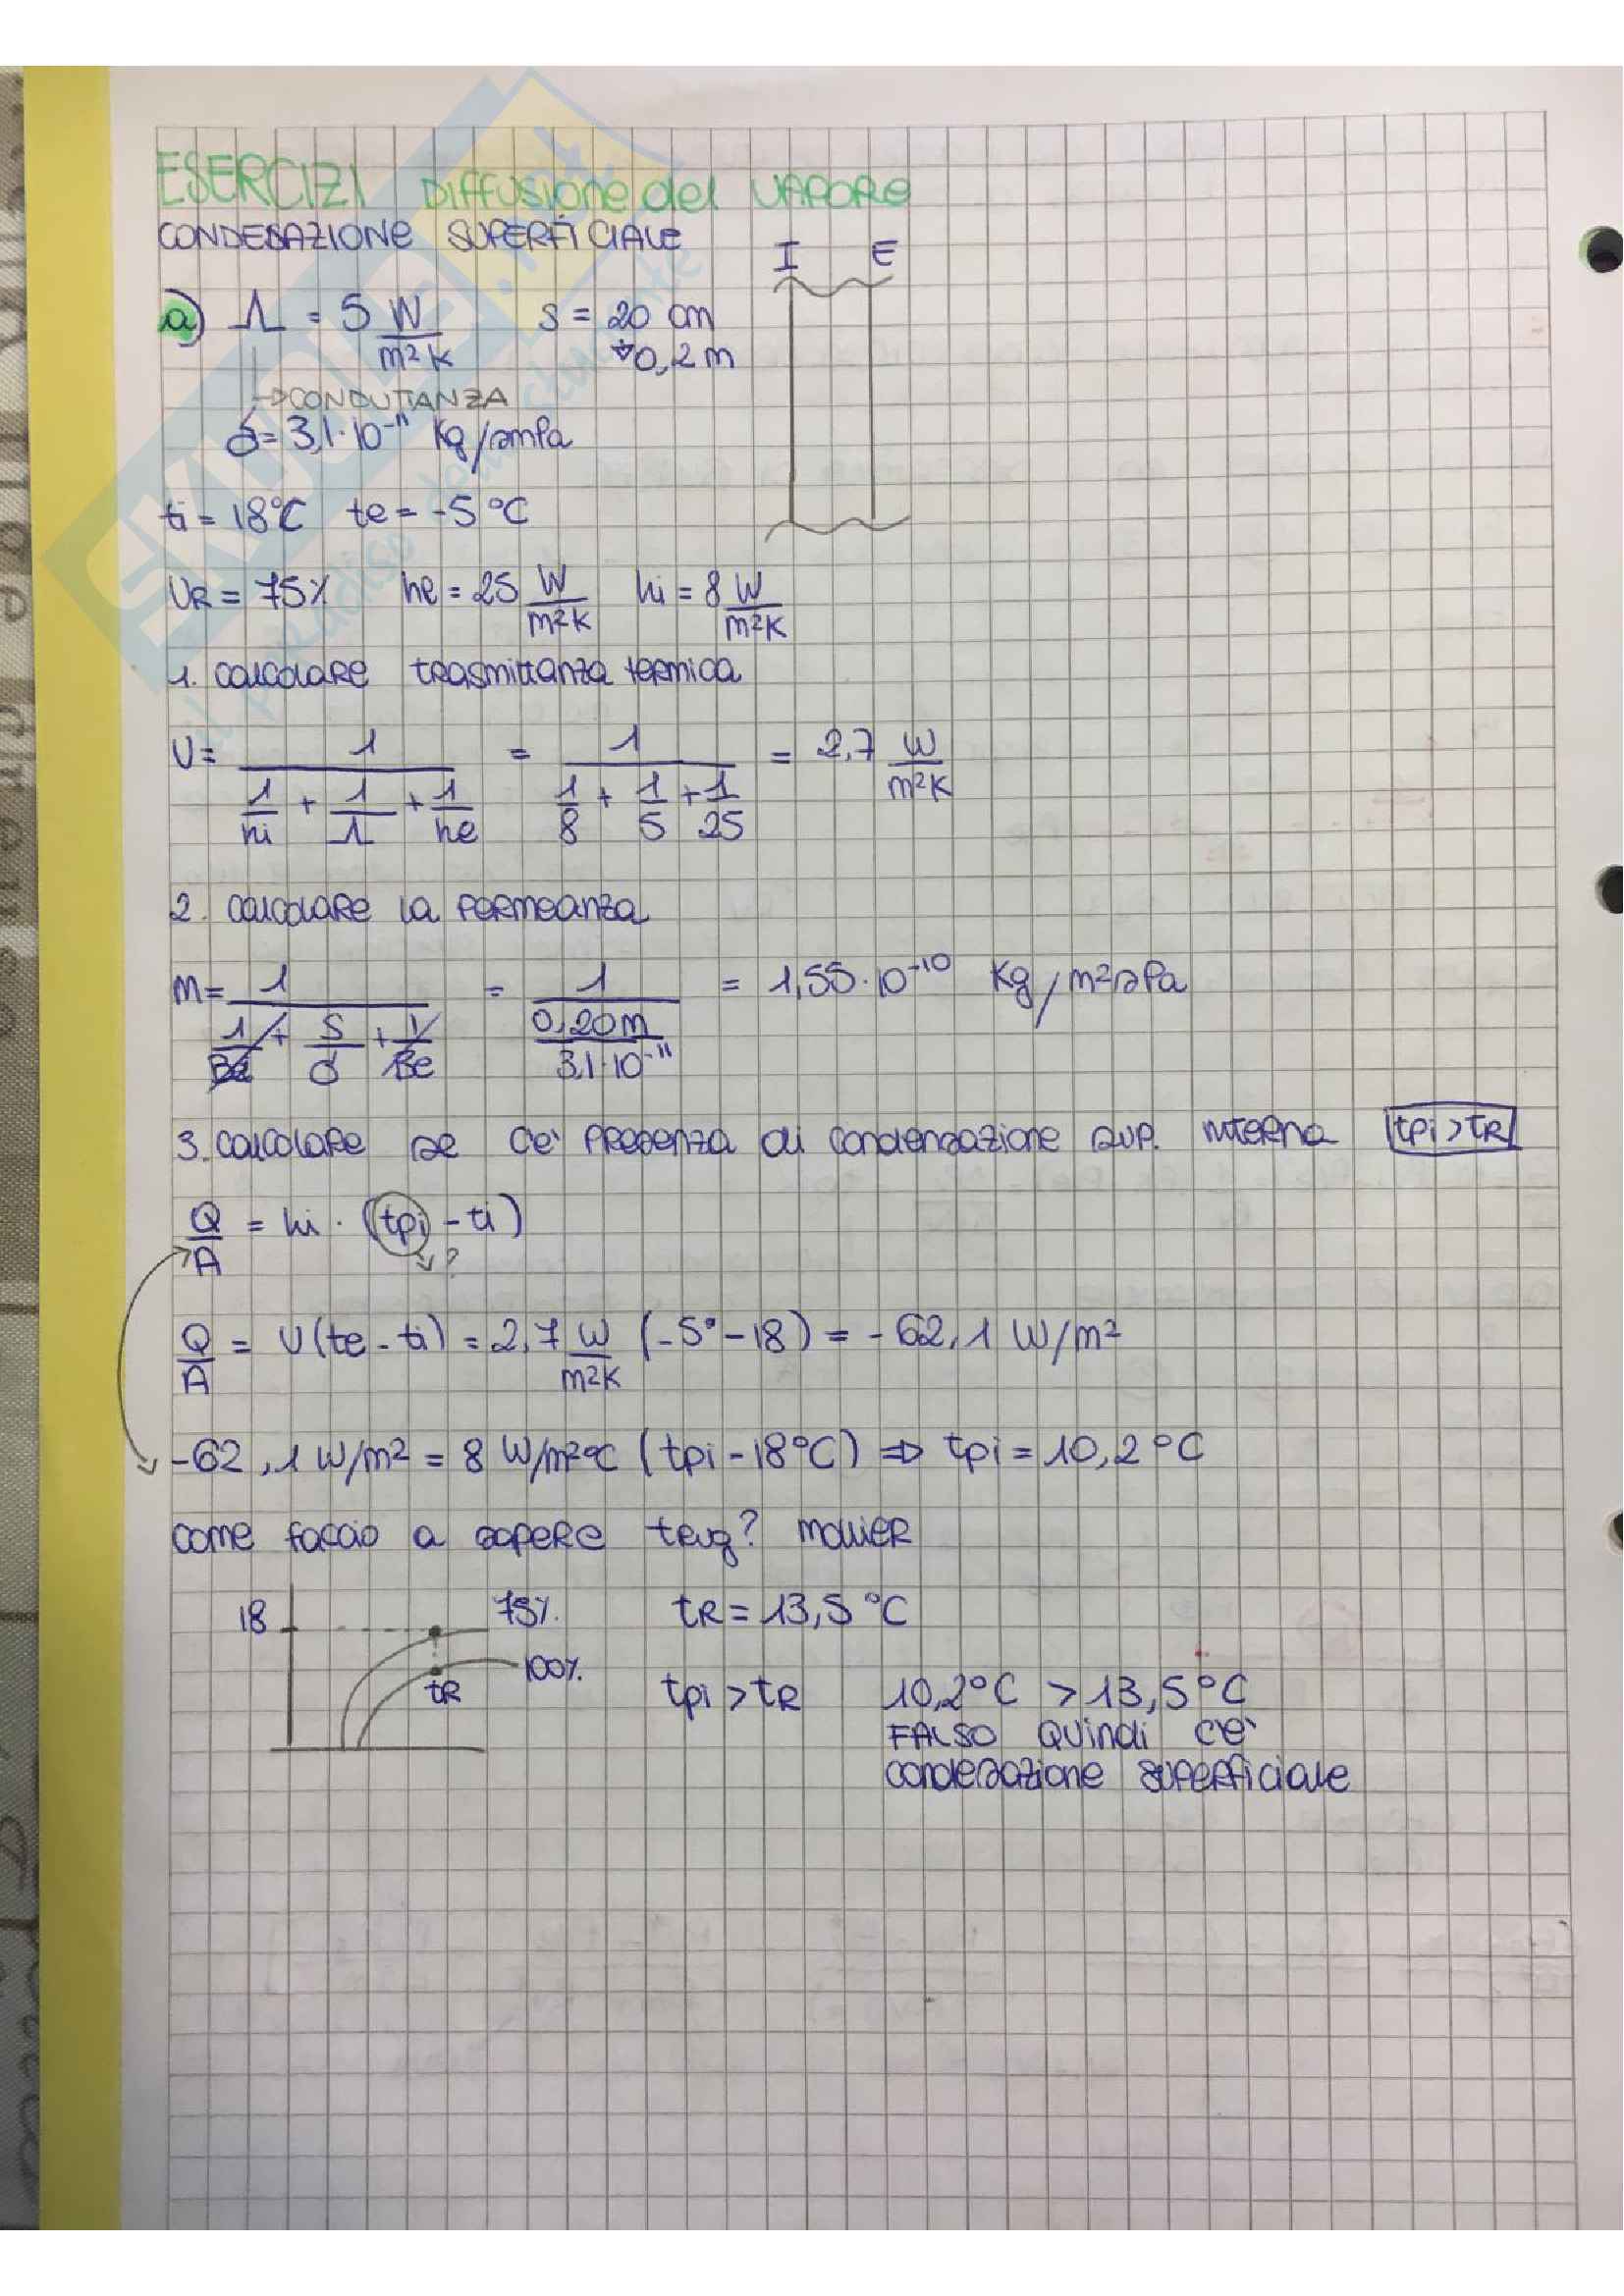 ESERCIZI DIFFUSIONE del VAPORE
CONDESAZIONE SUPERFICIALE
I E
a) Λ = 5 W/m²K s = 20 cm
0,2 m
→ CONDUTTANZA
δ = 3,1·10⁻¹¹ Kg/smPa
ti = 18°C te = -5°C
UR = 75% he = 25 W/m²K hi = 8 W/m²K
1. calcolare trasmittanza termica
U = 1/(1/hi + 1/Λ + 1/he) = 1/(1/8 + 1/5 + 1/25) = 2,7 W/m²K
2. calcolare la permeanza
M = 1/(1/Be + s/δ + 1/Be) = 1/(0,20m/3,1·10⁻¹¹) = 1,55·10⁻¹⁰ Kg/m²sPa
3. calcolare se c'è presenza di condensazione sup. interna tpi > tR
Q/A = hi · (tpi - ti)
?
Q/A = U(te - ti) = 2,7 W/m²K (-5° - 18) = -62,1 W/m²
-62,1 W/m² = 8 W/m²°C (tpi - 18°C) ⇒ tpi = 10,2°C
come faccio a sapere trug? mollier
18 75% tR = 13,5°C
100%
tR
tpi > tR 10,2°C > 13,5°C
FALSO quindi c'è
condesazione superficiale
SKUOLA.net
il paradiso dello studente